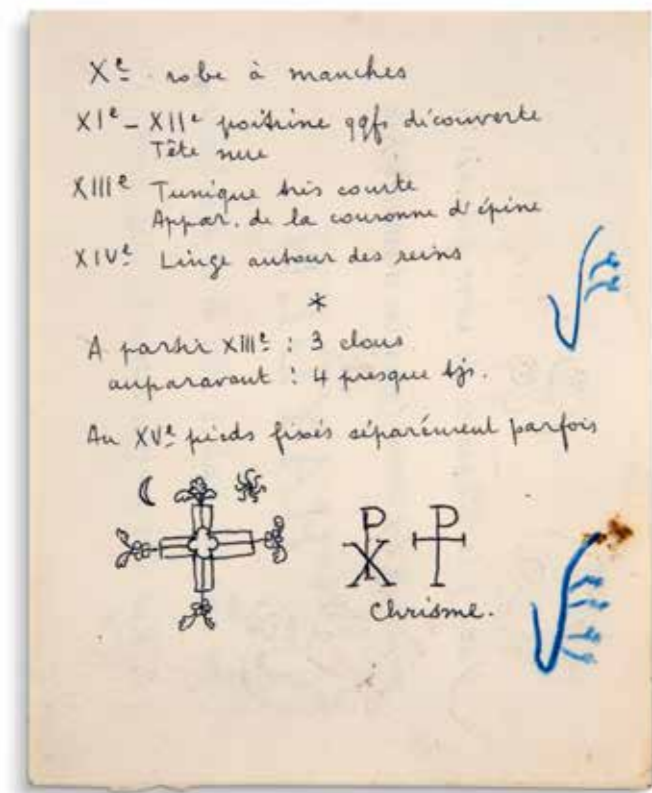 Xe robe à manches
XIe – XIIe poitrine qqfs découverte
Tête nue
XIIIe Tunique très courte
Appar. de la couronne d'épine
XIVe Linge autour des reins
*
A partir XIIIe : 3 clous
auparavant : 4 presque tjs.
Au XVe pieds fixés séparément parfois
Chrisme.